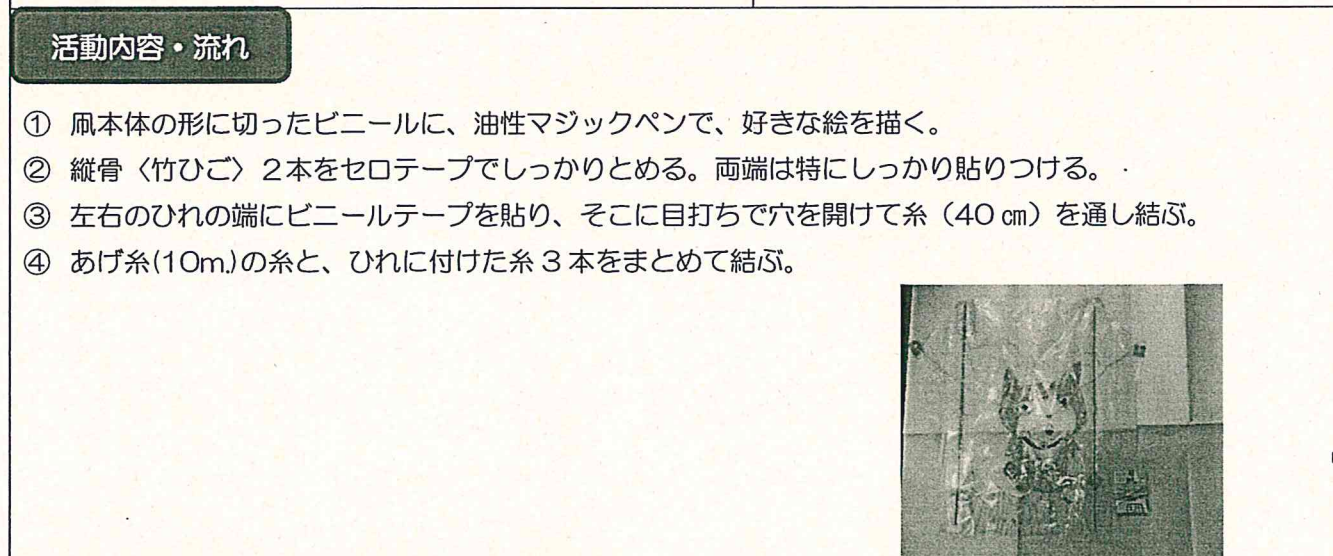 活動内容・流れ
① 凧本体の形に切ったビニールに、油性マジックペンで、好きな絵を描く。
② 縦骨〈竹ひご〉2本をセロテープでしっかりとめる。両端は特にしっかり貼りつける。
③ 左右のひれの端にビニールテープを貼り、そこに目打ちで穴を開けて糸（40㎝）を通し結ぶ。
④ あげ糸(10m.)の糸と、ひれに付けた糸3本をまとめて結ぶ。